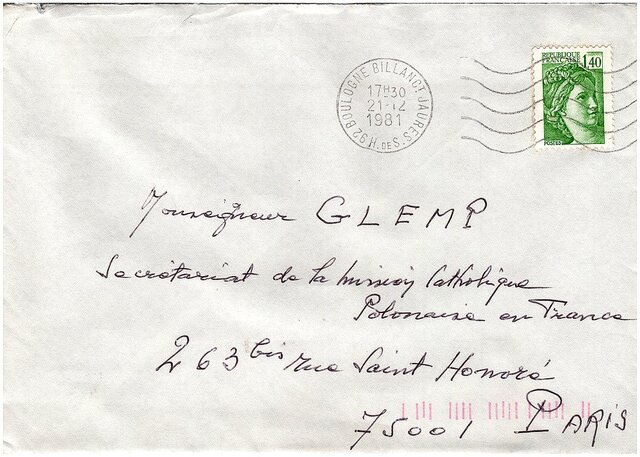 REPUBLIQUE
FRANCAISE 1,40
POSTES
92 BOULOGNE BILLANCT JAURES
17H30
21-12
1981
H. DE S.
Monseigneur GLEMP
Secrétariat de la mission Catholique
Polonaise en France
263 bis rue Saint Honoré
75001 PARIS